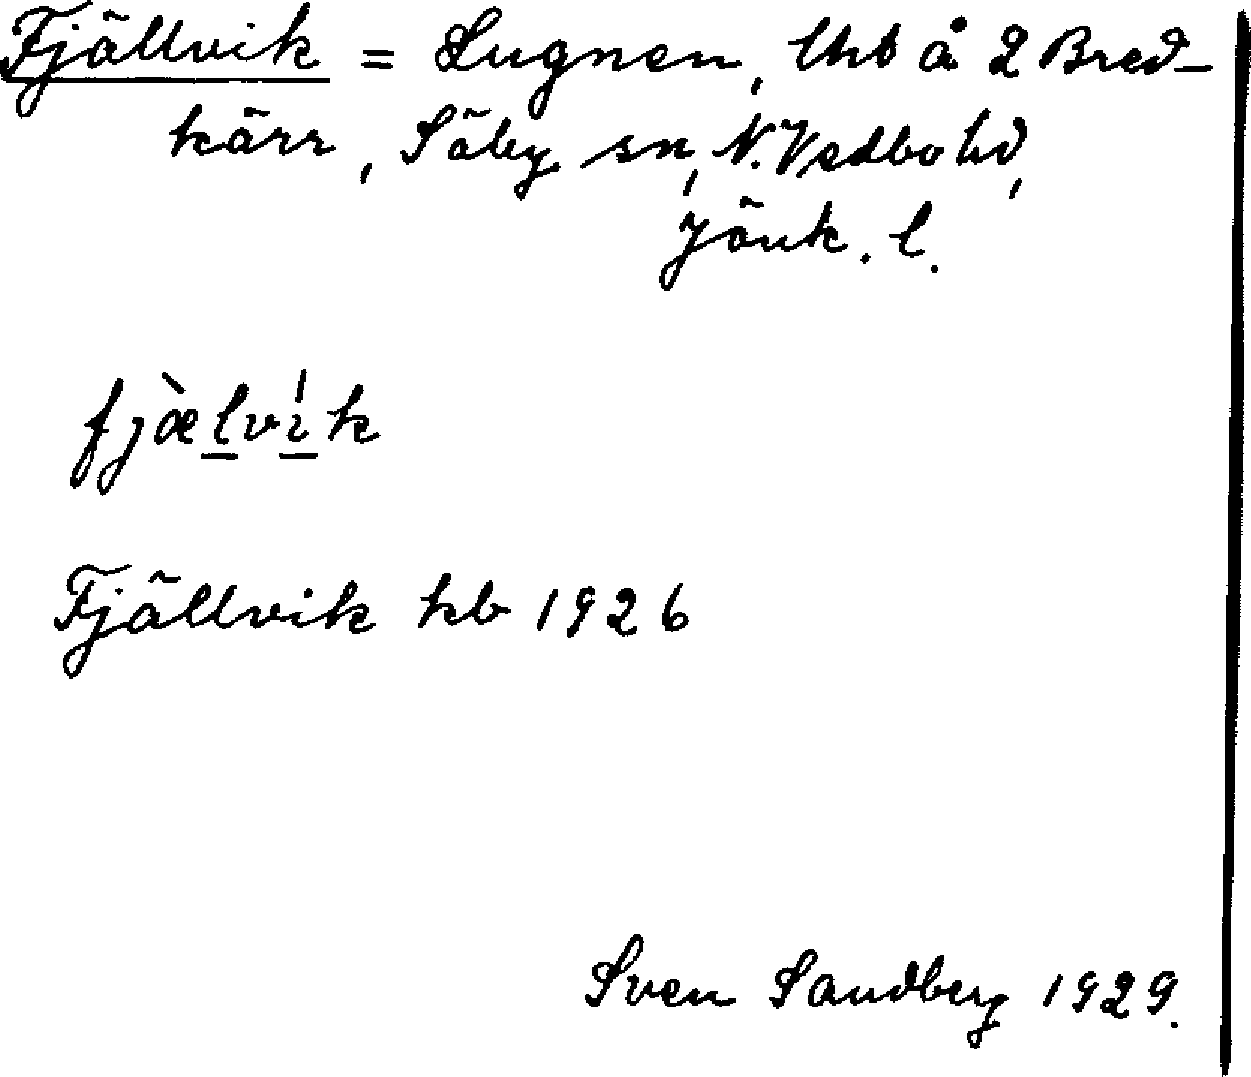 Fjällvik = Lugnen, lhb å 2 Bred-
kärr, Säby sn, N. Vedbo hd,
Jönk. l.
fjæ̀lvík
Fjällvik kb 1926
Sven Sandberg 1929.